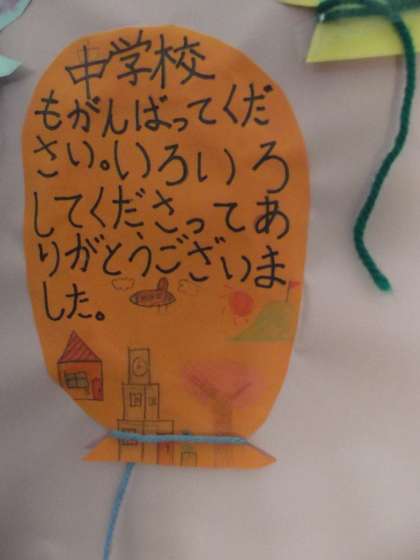 中学校
もがんばってくだ
さい。いろいろ
してくださってあ
りがとうございま
した。